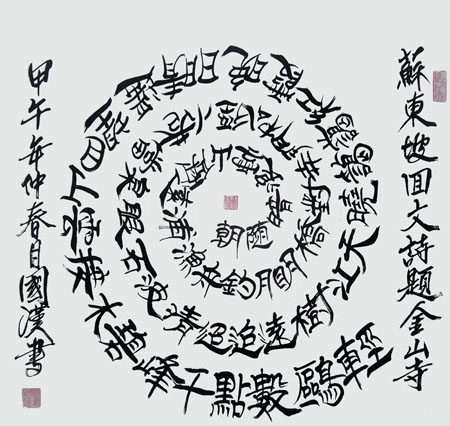 蘇東坡回文詩題金山寺
潮隨暗浪雪山傾遠浦漁舟釣月明橋對寺門松徑小檻當泉眼石波清迢迢遠樹江天曉靄靄紅霞晚日晴遙望四山雲接水碧峰千點數鷗輕
甲午年仲春月國漢書